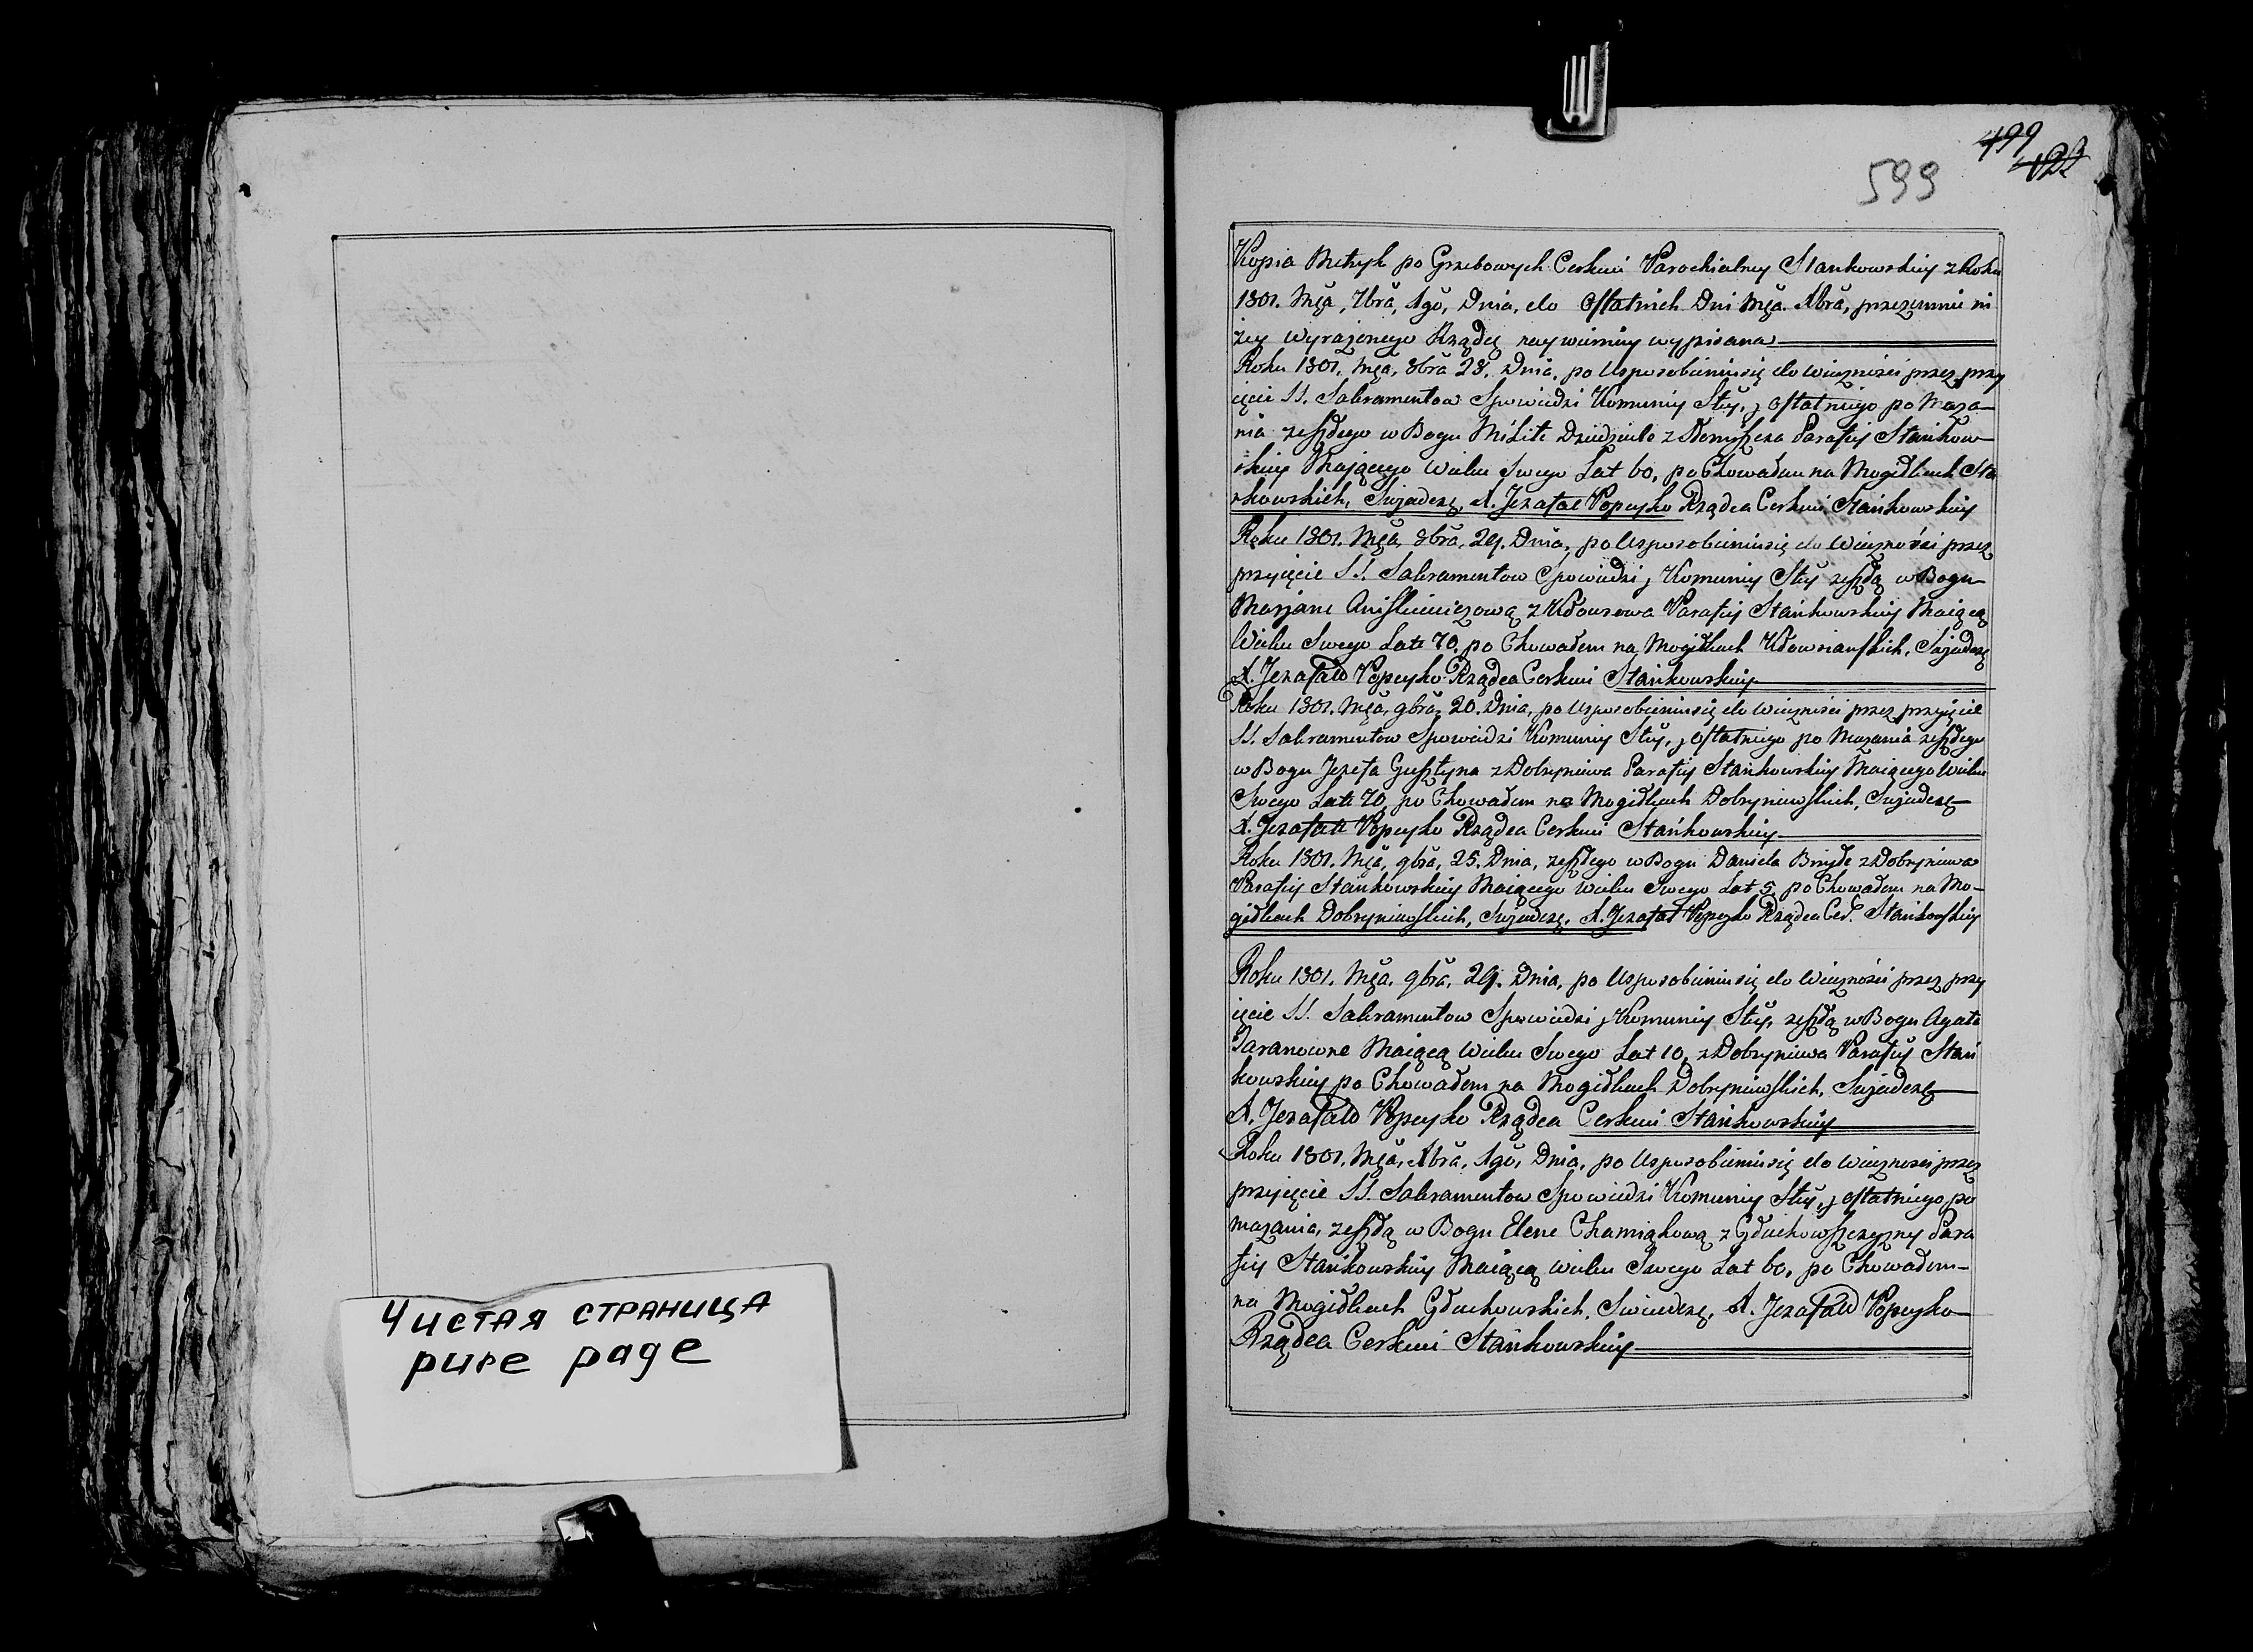 499
599
Чистая страница
pure page
Kopia Metryk po Grzebowych Cerkwi Parochialney Stankowskiey z Roku
1801. Mca, 7bra, 1go, Dnia, do ostatnich Dni Mca. Xbra, przezemnie ni
zey wyrażonego Rządcę nay wierniey wypisana
Roku 1801. Mca, 8bra 28. Dnia, po Usposobieniu się do wieczności przez przy
ięcie SS. Sakramentow Spowiedzi Komuniy Stey, j ostatniego po Maza
nia zeszłego w Bogu Mikite Dziedziule z Parafiy Stańkow
skiey Mającego wieku Swego Lat 60, po Chowałem na Mogiłkach Sta
nkowskich, Swiadczę, X. Jozafat Rządca Cerkwi Stańkowskiey
Roku 1801. Mca, 8bra, 29. Dnia, po Usposobieniu się do Wieczności przez
przyięcie SS. Sakramentow Spowiedzi j Komuniy Stey zeszłą w Bogu
Marjane z Parafiy Stańkowskiey Maiącą
Wieku Swego Lat 70, po Chowałem na Mogiłkach Swiadczę
X. Jozafat Rządca Cerkwi Stańkowskiey
Roku 1801. Mca, 9bra, 20. Dnia, po Usposobieniu się do wieczności przez przyięcie
SS. Sakramentow Spowiedzi Komuniy Stey, j ostatniego po Mazania zeszłego
w Bogu Jozefa z Dobryniewa Parafiy Stańkowskiey Maiącego Wieku
Swego Lat 70, po Chowałem na Mogiłkach Dobryniewskich, Swiadczę
X. Jozafat Rządca Cerkwi Stańkowskiey
Roku 1801. Mca, 9bra, 25. Dnia, zeszłego w Bogu Daniela z Dobryniewa
Parafiy Stańkowskiey Maiącego wieku Swego Lat 5, po Chowałem na Mo-
giłkach Dobryniewskich, Swiadczę, X. Jozafat Rządca Cer. Stańkowskiey
Roku 1801. Mca. 9bra, 29. Dnia, po Usposobieniu się do Wieczności przez przy
ięcie SS. Sakramentow Spowiedzi j Komuniy Stey, zeszłą w Bogu Agate
Taranowne Maiącą wieku Swego Lat 10, z Dobryniewa Parafiy Stań
kowskiey po Chowałem na Mogiłkach Dobryniewskich, Swiadczę
X. Jozafat Rządca Cerkwi Stańkowskiey
Roku 1801. Mca, Xbra, 1go, Dnia, po Usposobieniu się do wieczności przez
przyięcie SS. Sakramentow Spowiedzi Komuniy Stey, j ostatniego po
mazania, zeszłą w Bogu Elene Chamiąkową z Para
fiy Stańkowskiey Maiącą wieku Swego Lat 60, po Chowałem
na Mogiłkach Swiadczę, X. Jozafat
Rządca Cerkwi Stańkowskiey